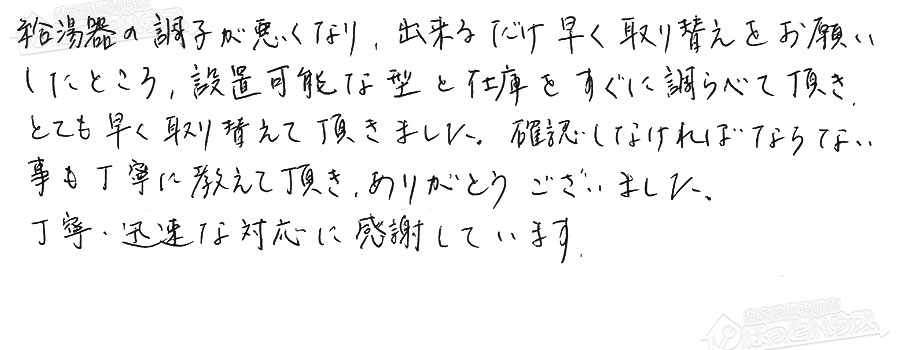 給湯器の調子が悪くなり、出来るだけ早く取り替えをお願い
したところ、設置可能な型と在庫をすぐに調らべて頂き、
とても早く取り替えて頂きました。確認しなければならない
事も丁寧に教えて頂き、ありがとうございました。
丁寧・迅速な対応に感謝しています。
住宅設備専門店
ほっとハウス